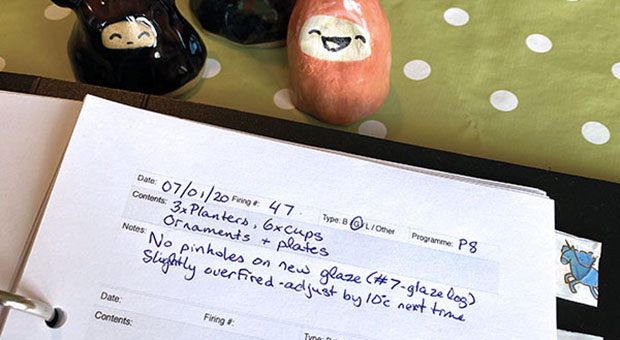 Date: 07/01/20 Firing #: 47 Type: B G L / Other Programme: P8
Contents: 3xPlanters, 6xcups
Ornaments + plates
Notes: No pinholes on new glaze (#7-glaze log)
Slightly overfired - adjust by 10°c next time
Date:
Contents: Firing #: Type: B